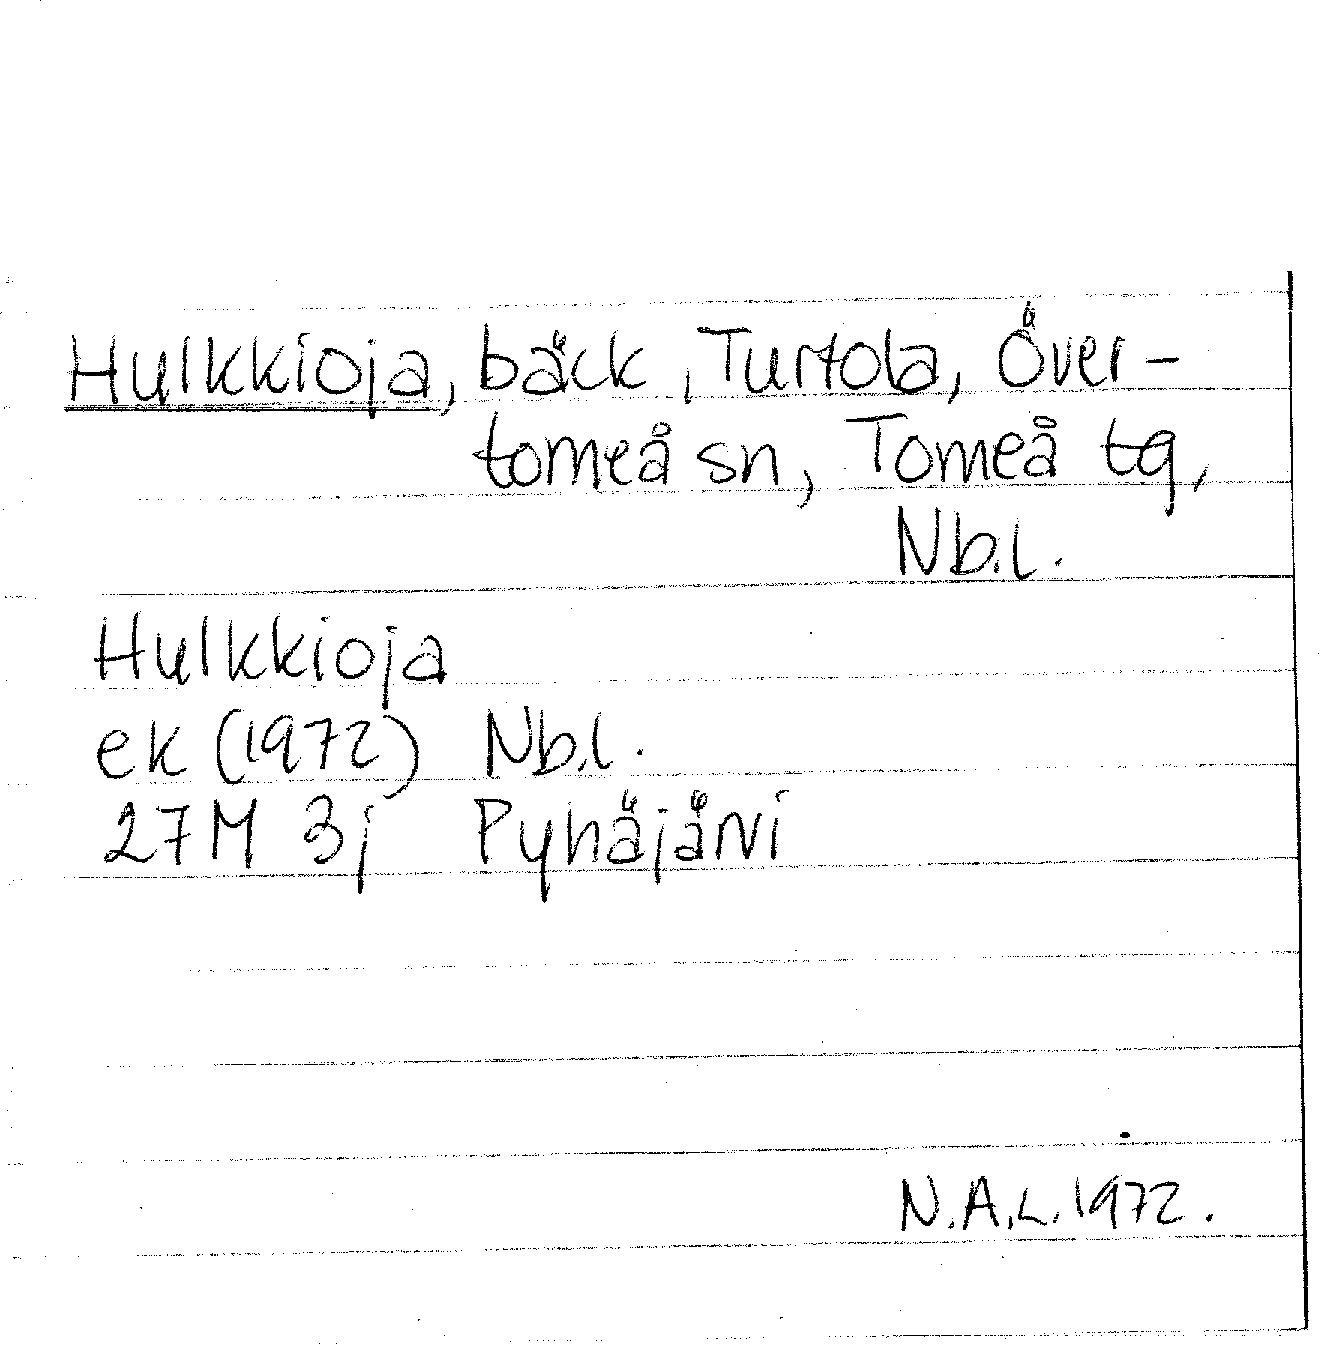 Hulkkioja, bäck, Turtola, Över-
torneå sn, Torneå tg,
Nb.l.
Hulkkioja
ek (1972) Nb.l.
27M 3j Pyhäjärvi
N.A.L. 1972.